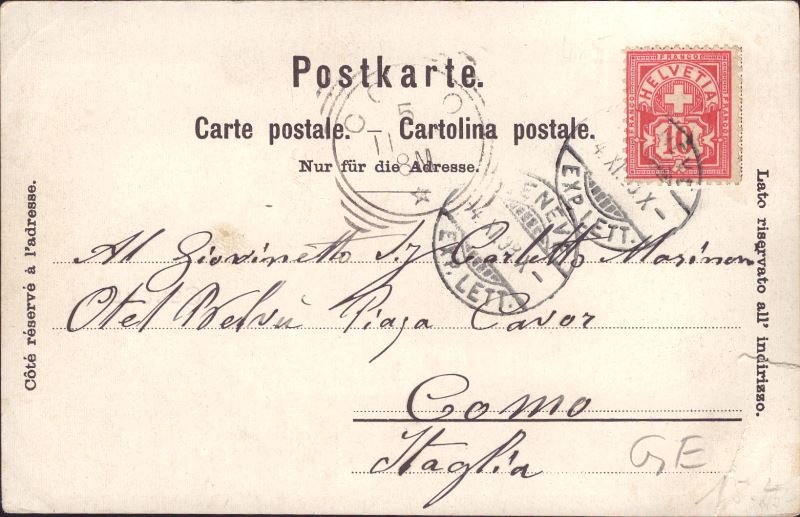 Postkarte.
Carte postale. Cartolina postale.
Nur für die Adresse.
Côté réservé à l'adresse.
Lato riservato all' indirizzo.
FRANCO
HELVETIA
FRANCO
FRANCO
10
COMO
5
11
8M
EXP. LETT.
EXP. LETT.
Al Giovinetto Sj Carletto
Otel Belvù Piaza Cavor
Como
Itaglia
GE